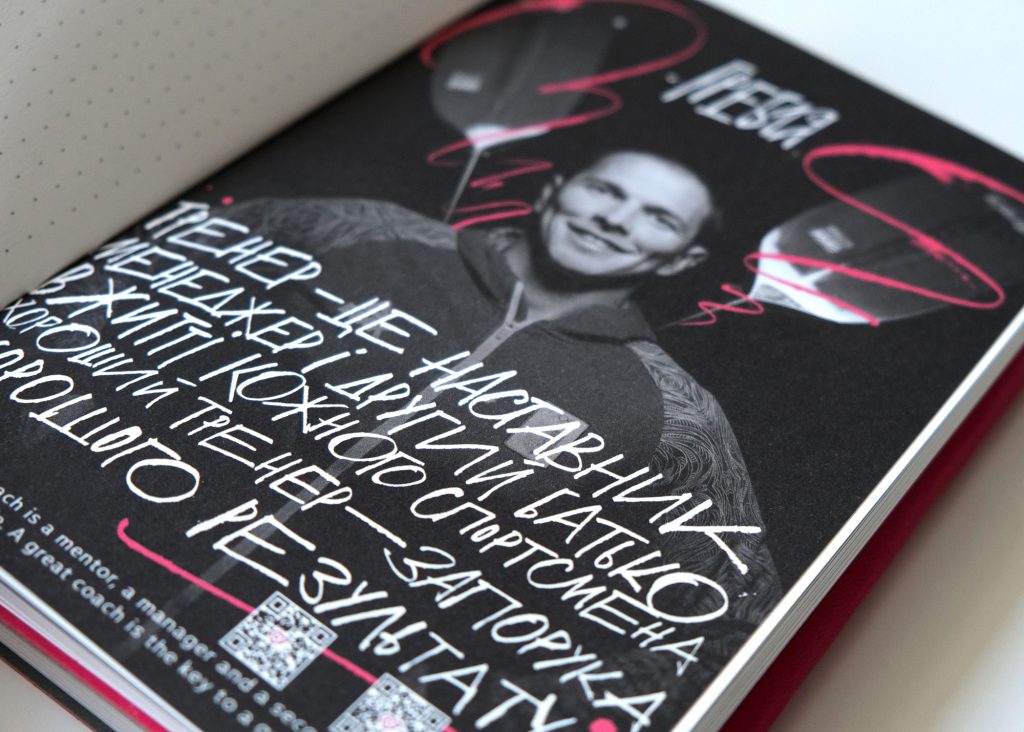 ТРЕНЕР – ЦЕ НАСТАВНИК,
МЕНЕДЖЕР І ДРУГИЙ БАТЬКО
В ЖИТТІ КОЖНОГО СПОРТСМЕНА
ХОРОШИЙ ТРЕНЕР – ЗАПОРУКА
ХОРОШОГО РЕЗУЛЬТАТУ
is a mentor, a manager and a
A great coach is the key to a